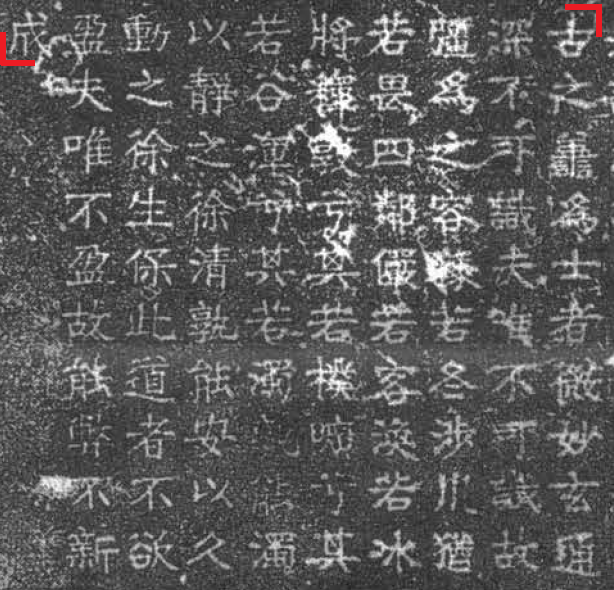 古之譱為士者微妙玄通
深不可識夫唯不可識故
彊為之容豫若冬涉川猶
若畏四鄰儼若客渙若冰
將釋敦兮其若樸曠兮其
若谷渾兮其若濁孰能濁
以靜之徐清孰能安以久
動之徐生保此道者不欲
盈夫唯不盈故能弊不新
成